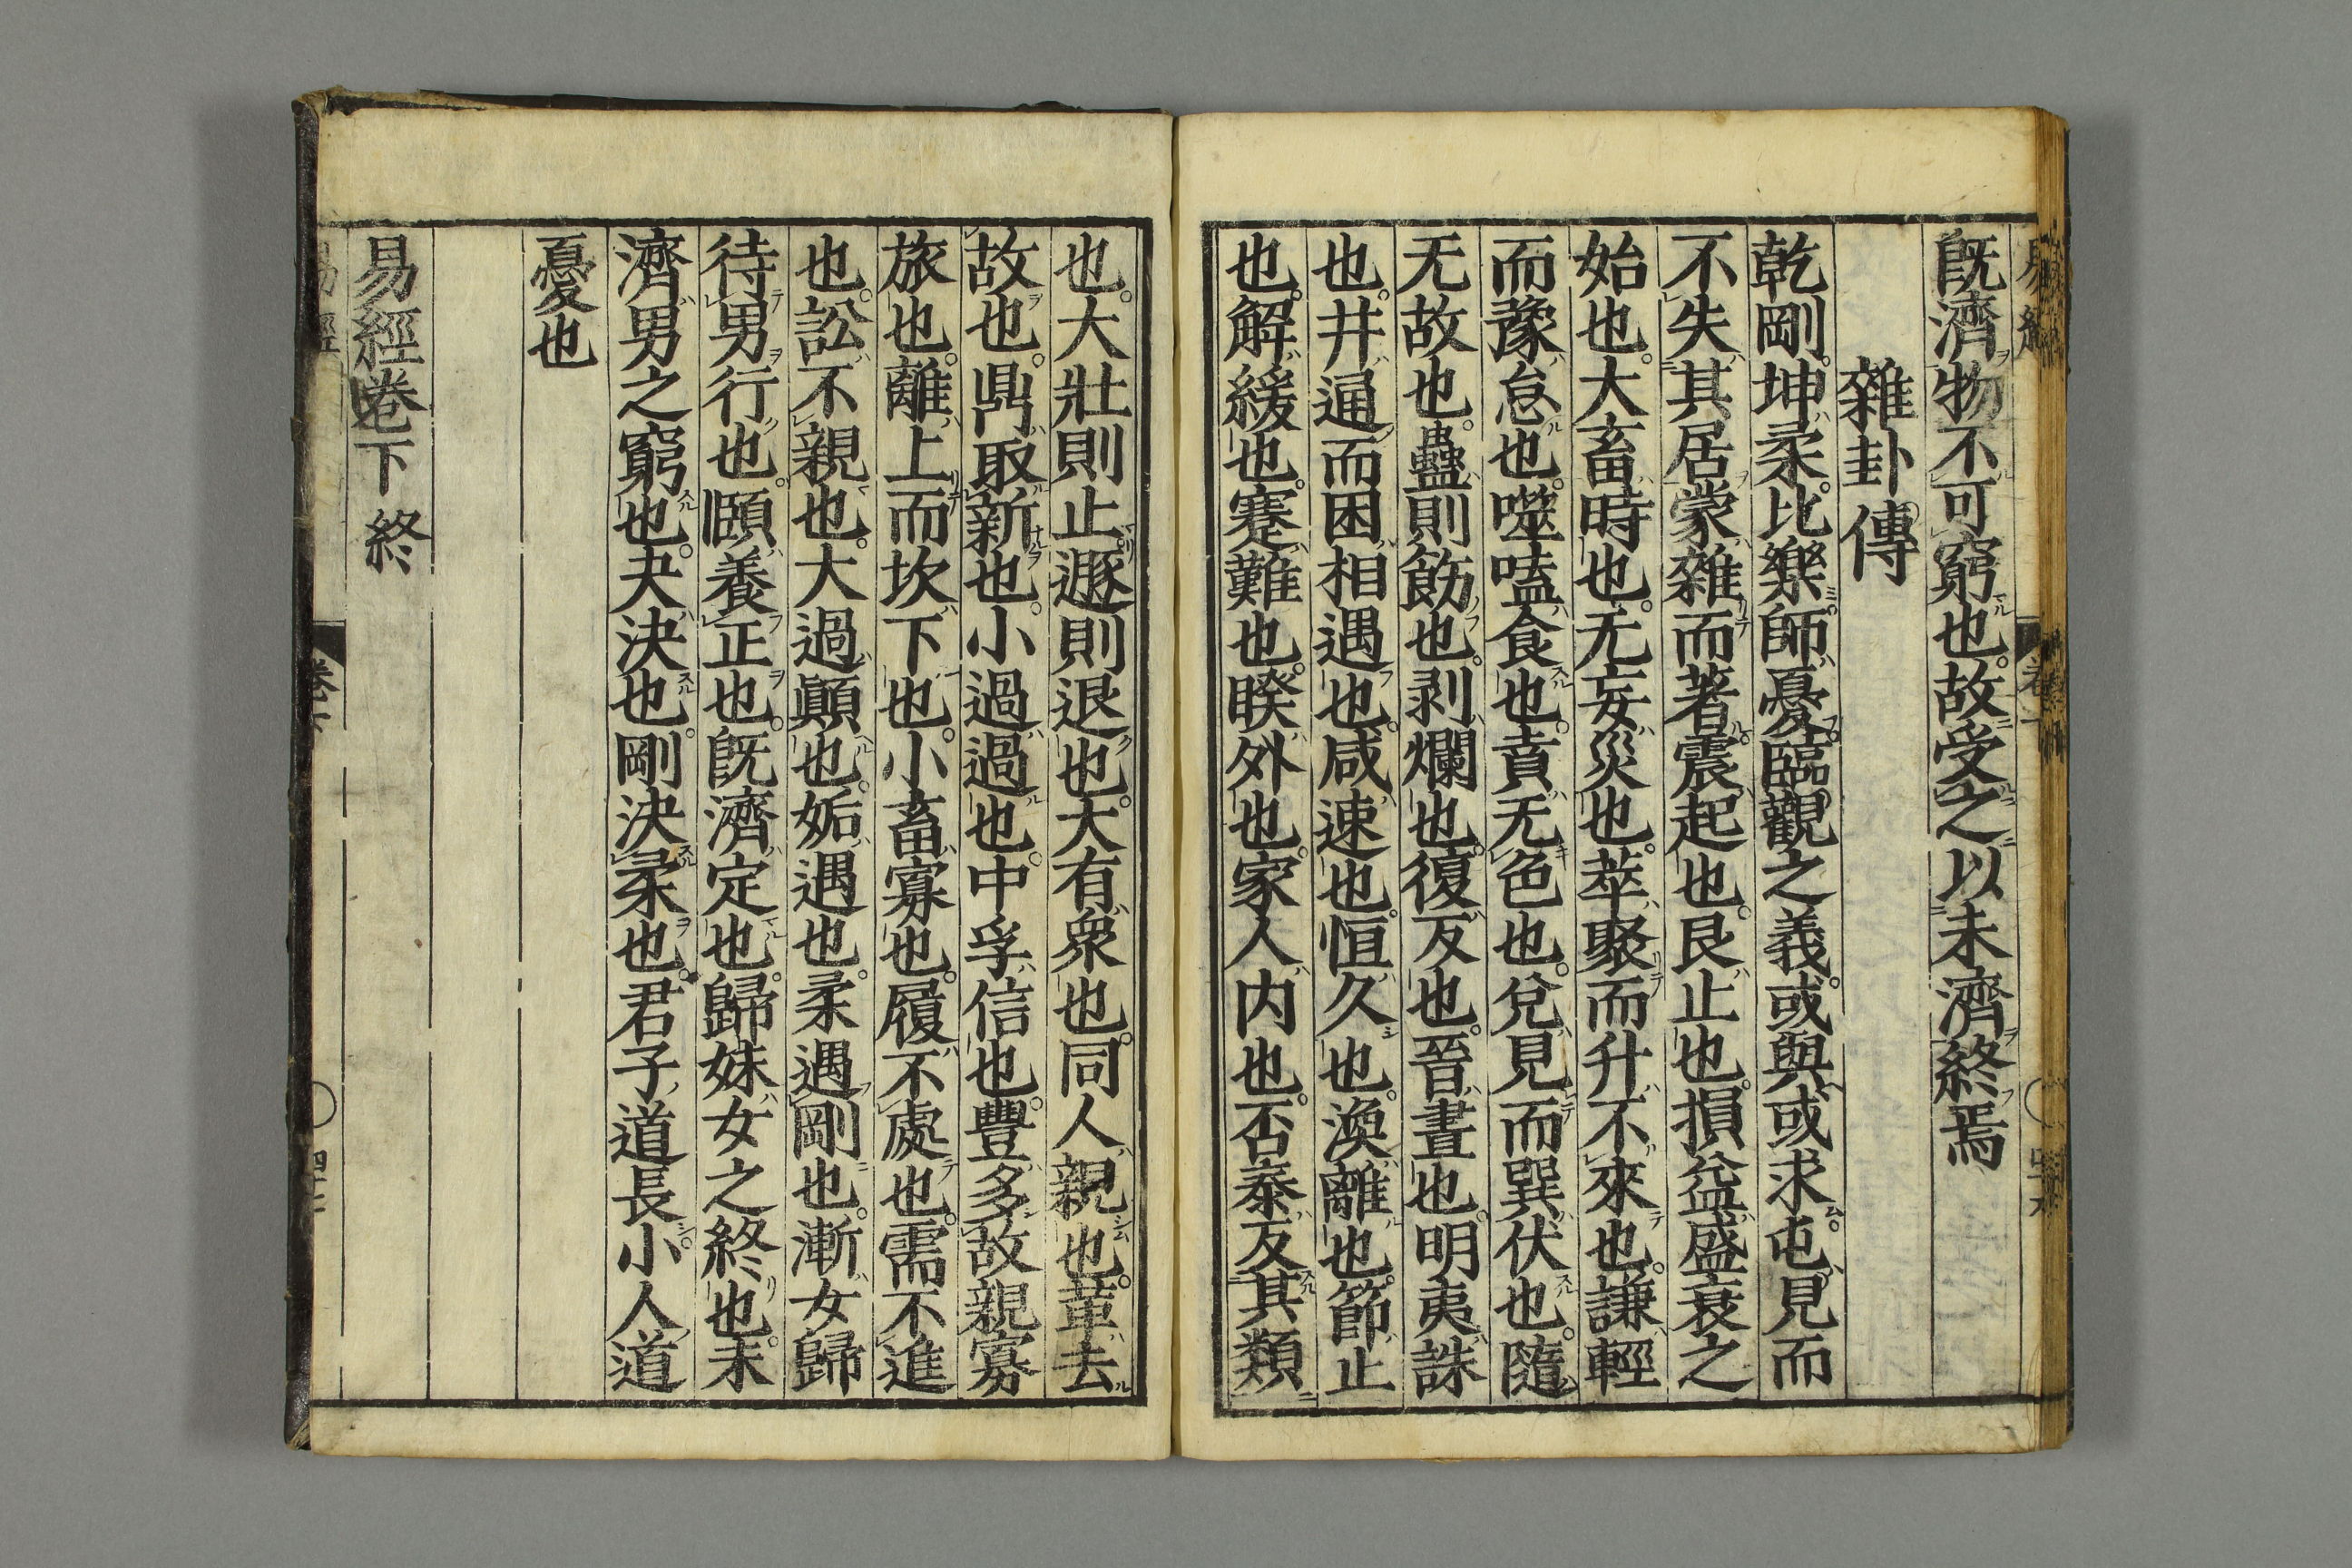 既濟物不可窮也故受之以未濟終焉
雜卦傳
乾剛坤柔比樂師憂臨觀之義或與或求屯見而
不失其居蒙雜而著震起也艮止也損益盛衰之
始也大畜時也无妄災也萃聚而升不來也謙輕
而豫怠也噬嗑食也賁无色也兌見而巽伏也隨
无故也蠱則飭也剥爛也復反也晉晝也明夷誅
也井通而困相遇也咸速也恒久也渙離也節止
也解緩也蹇難也睽外也家人内也否泰反其類
也大壯則止遯則退也大有衆也同人親也革去
故也鼎取新也小過過也中孚信也豐多故親寡
旅也離上而坎下也小畜寡也履不處也需不進
也訟不親也大過顚也姤遇也柔遇剛也漸女歸
待男行也頤養正也既濟定也歸妹女之終也未
濟男之窮也夬決也剛決柔也君子道長小人道
憂也
易經卷下終